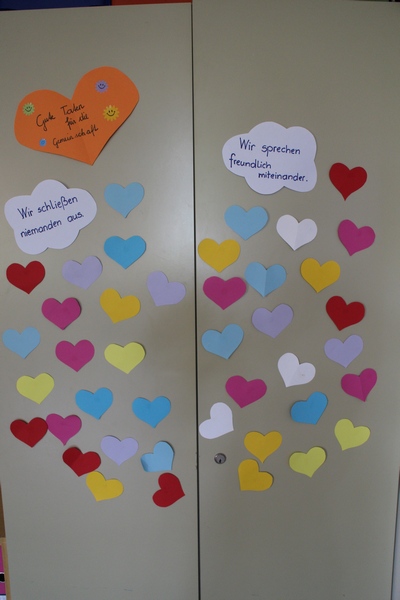 Gute Taten
für die
Gemeinschaft
Wir schließen
niemanden aus.
Wir sprechen
freundlich
miteinander.